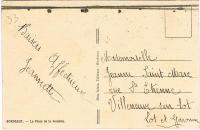 Baisers
Affectueux
Jeannette
Mademoiselle
Jeanne Saint-Marc
rue St Étienne
Villeneuve sur Lot
Lot et Garonne
BORDEAUX. - La Place de la